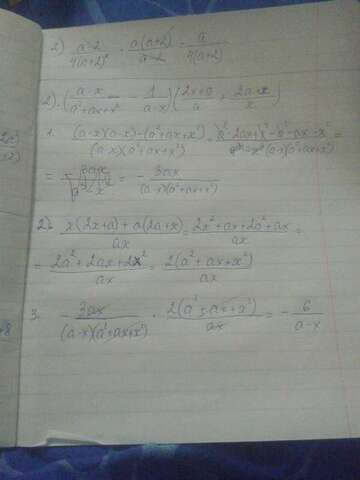 2) (a-2)/(4(a+2)²) · (a(a+2))/(a-2) = a/(4(a+2))
2). ((a-x)/(a²+ax+x²) - 1/(a-x)) (2x+a)/a + (2a+x)/x)
1. ((a-x)(a-x)-(a²+ax+x²))/((a-x)(a²+ax+x²)) = (a²-2ax+x²-a²-ax-x²)/((a-x)(a²+ax+x²)) =
= - 3ax/(a³-x³) = - 3ax/((a-x)(a²+ax+x²))
2). (x(2x+a)+a(2a+x))/ax = (2x²+ax+2a²+ax)/ax =
= (2a²+2ax+2x²)/ax = (2(a²+ax+x²))/ax
3. - 3ax/((a-x)(a²+ax+x²)) · (2(a²+ax+x²))/ax = - 6/(a-x)